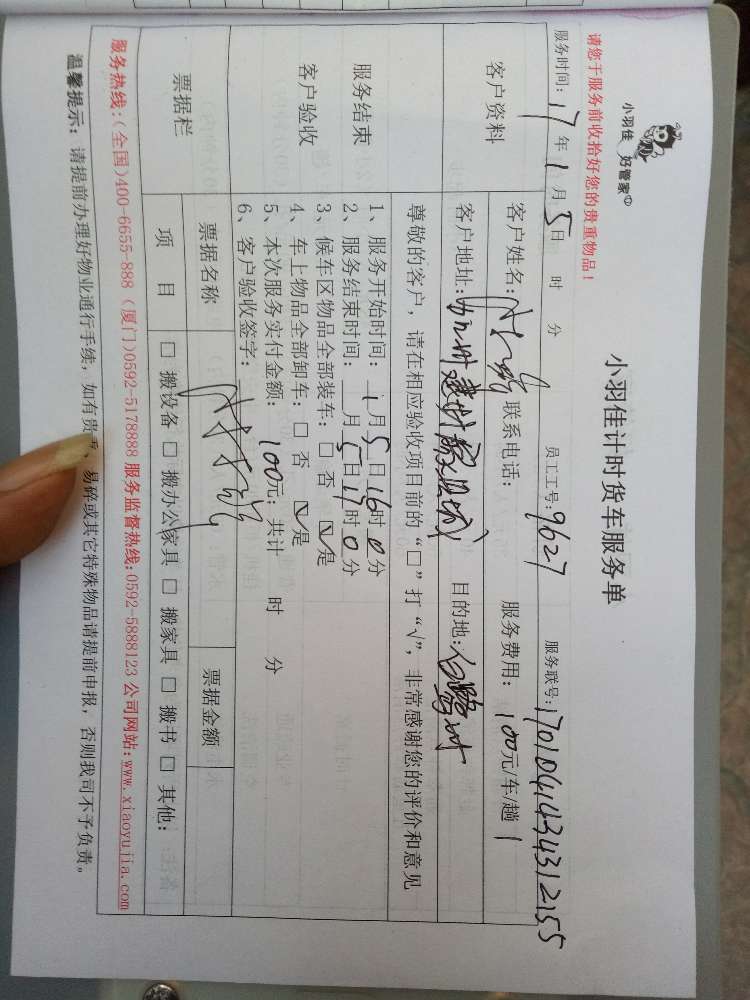 小羽佳 好管家
小羽佳计时货车服务单
请您于服务前收拾好您的贵重物品！
服务时间：17年1月5日 时 分 员工工号：9627 服务联号：1701041434312155
客户资料
客户姓名： 联系电话： 服务费用：100元/车/趟 1
客户地址： 目的地：
尊敬的客户，请在相应验收项目前的“□”打“√”，非常感谢您的评价和意见
服务结束
客户验收
1、服务开始时间：1月5日16时0分
2、服务结束时间：1月5日17时0分
3、候车区物品全部装车：□ 否 ☑是
4、车上物品全部卸车：□ 否 ☑是
5、本次服务实付金额：100元；共计 时 分
6、客户验收签字：
票据栏
票据名称 票据金额
项目 □ 搬设备 □ 搬办公家具 □ 搬家具 □ 搬书 □ 其他：
服务热线：(全国)400-6655-888 (厦门)0592-5178888 服务监督热线：0592-5888123 公司网站：www.xiaoyujia.com
温馨提示：请提前办理好物业通行手续，如有贵 、易碎或其它特殊物品请提前申报，否则我司不予负责。